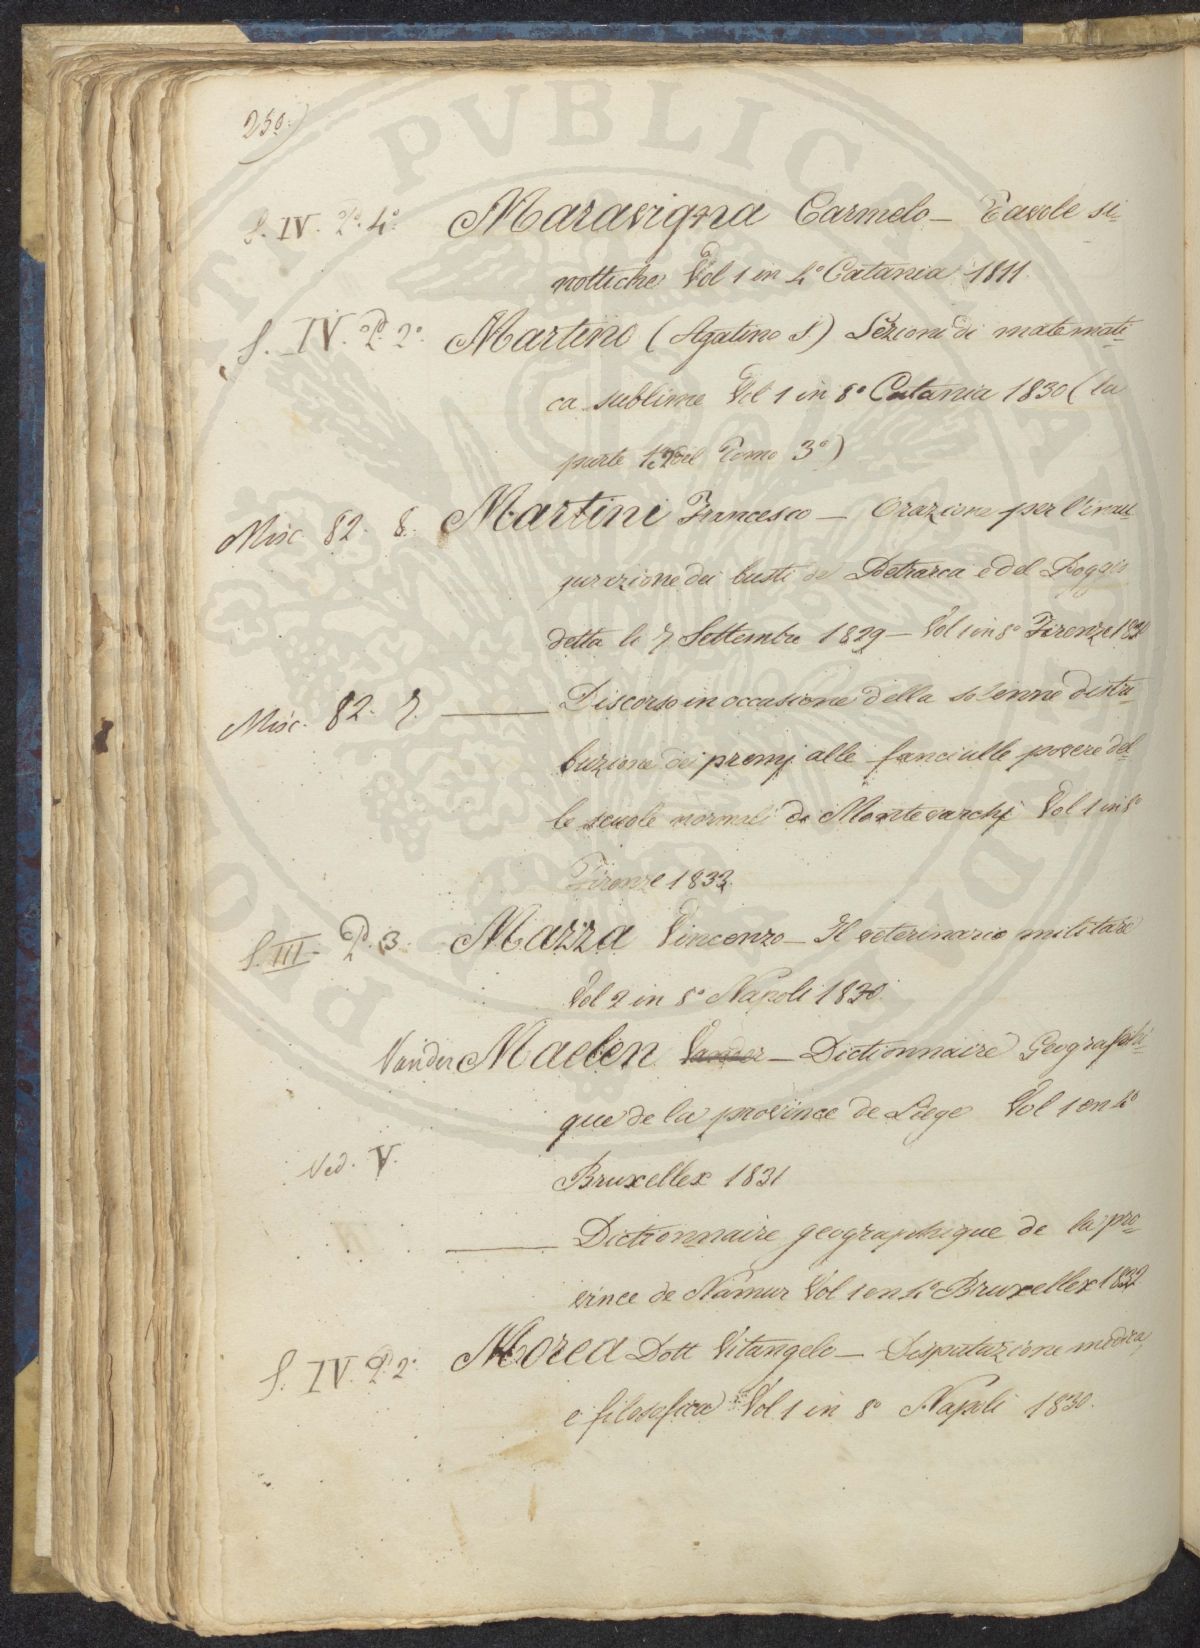 250.)
S. IV. P.º 4.º Maravigna Carmelo — Tavole si-
nottiche Vol 1 in 4º Catania 1811.
S. IV. P. 2º Martino (Agatino S.) Lezioni di matemati-
ca sublime Vol 1 in 8º Catania 1830 (la
parte del Tomo 3º)
Misc. 82. 8. Martini Francesco — Orazione per l'inau-
gurazione dei busti del Petrarca e del Poggio
detta le 7 Settembre 1829 — Vol 1 in 8º Firenze
Misc. 82. 7. ——— Discorso in occasione della solenne distri-
buzione dei premj alle fanciulle povere del-
le scuole normali di Montevarchj Vol 1 in 8º
Firenze 1833.
S. III. P. 3. Mazza Vincenzo — Il veterinario militare
Vol 2 in 8º Napoli 1830.
Vander Maelen Vander — Dictionnaire Geographi-
que de la province de Liege Vol 1 en 4º
Ved. V.
Bruxelles 1831
——— Dictionnaire geographique de la pro-
vince de Namur Vol 1 en 4º Bruxelles 1832
S. IV. P. 2º Morea Dott Vitangelo — Disputazione medica,
e filosofica Vol 1 in 8º Napoli 1830.
PVBLICA